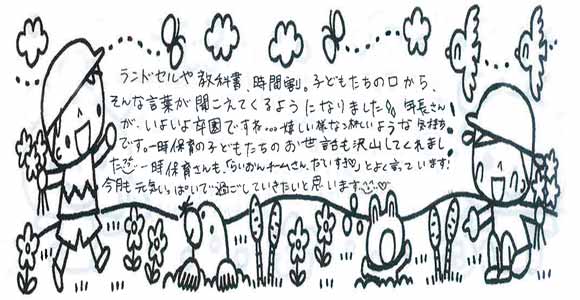 ランドセルや教科書、時間割。子どもたちの口から、
そんな言葉が聞こえてくるようになりました♪年長さん
が、いよいよ卒園ですね…嬉しい様なつ淋しいような気持ち
です。一時保育の子どもたちのお世話も沢山してくれまし
た 一時保育さんも、「らいおんチームさん、だいすき♡」とよく言っています!
今月も元気いっぱいで過ごしていきたいと思います♡